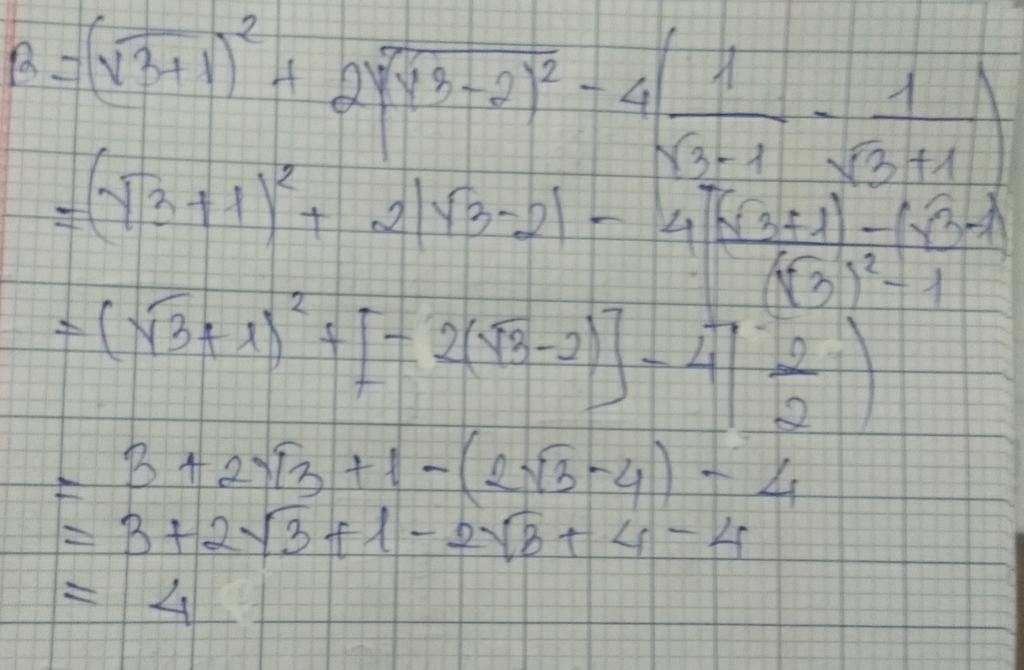 B = (√3+1)² + 2√(√3-2)² - 4(1/(√3-1) - 1/(√3+1))
= (√3+1)² + 2|√3-2| - 4[((√3+1) - (√3-1))/((√3)²-1)]
= (√3+1)² + [-2(√3-2)] - 4[2/2)
= 3+2√3+1-(2√3-4)-4
= 3+2√3+1-2√3+4-4
= 4